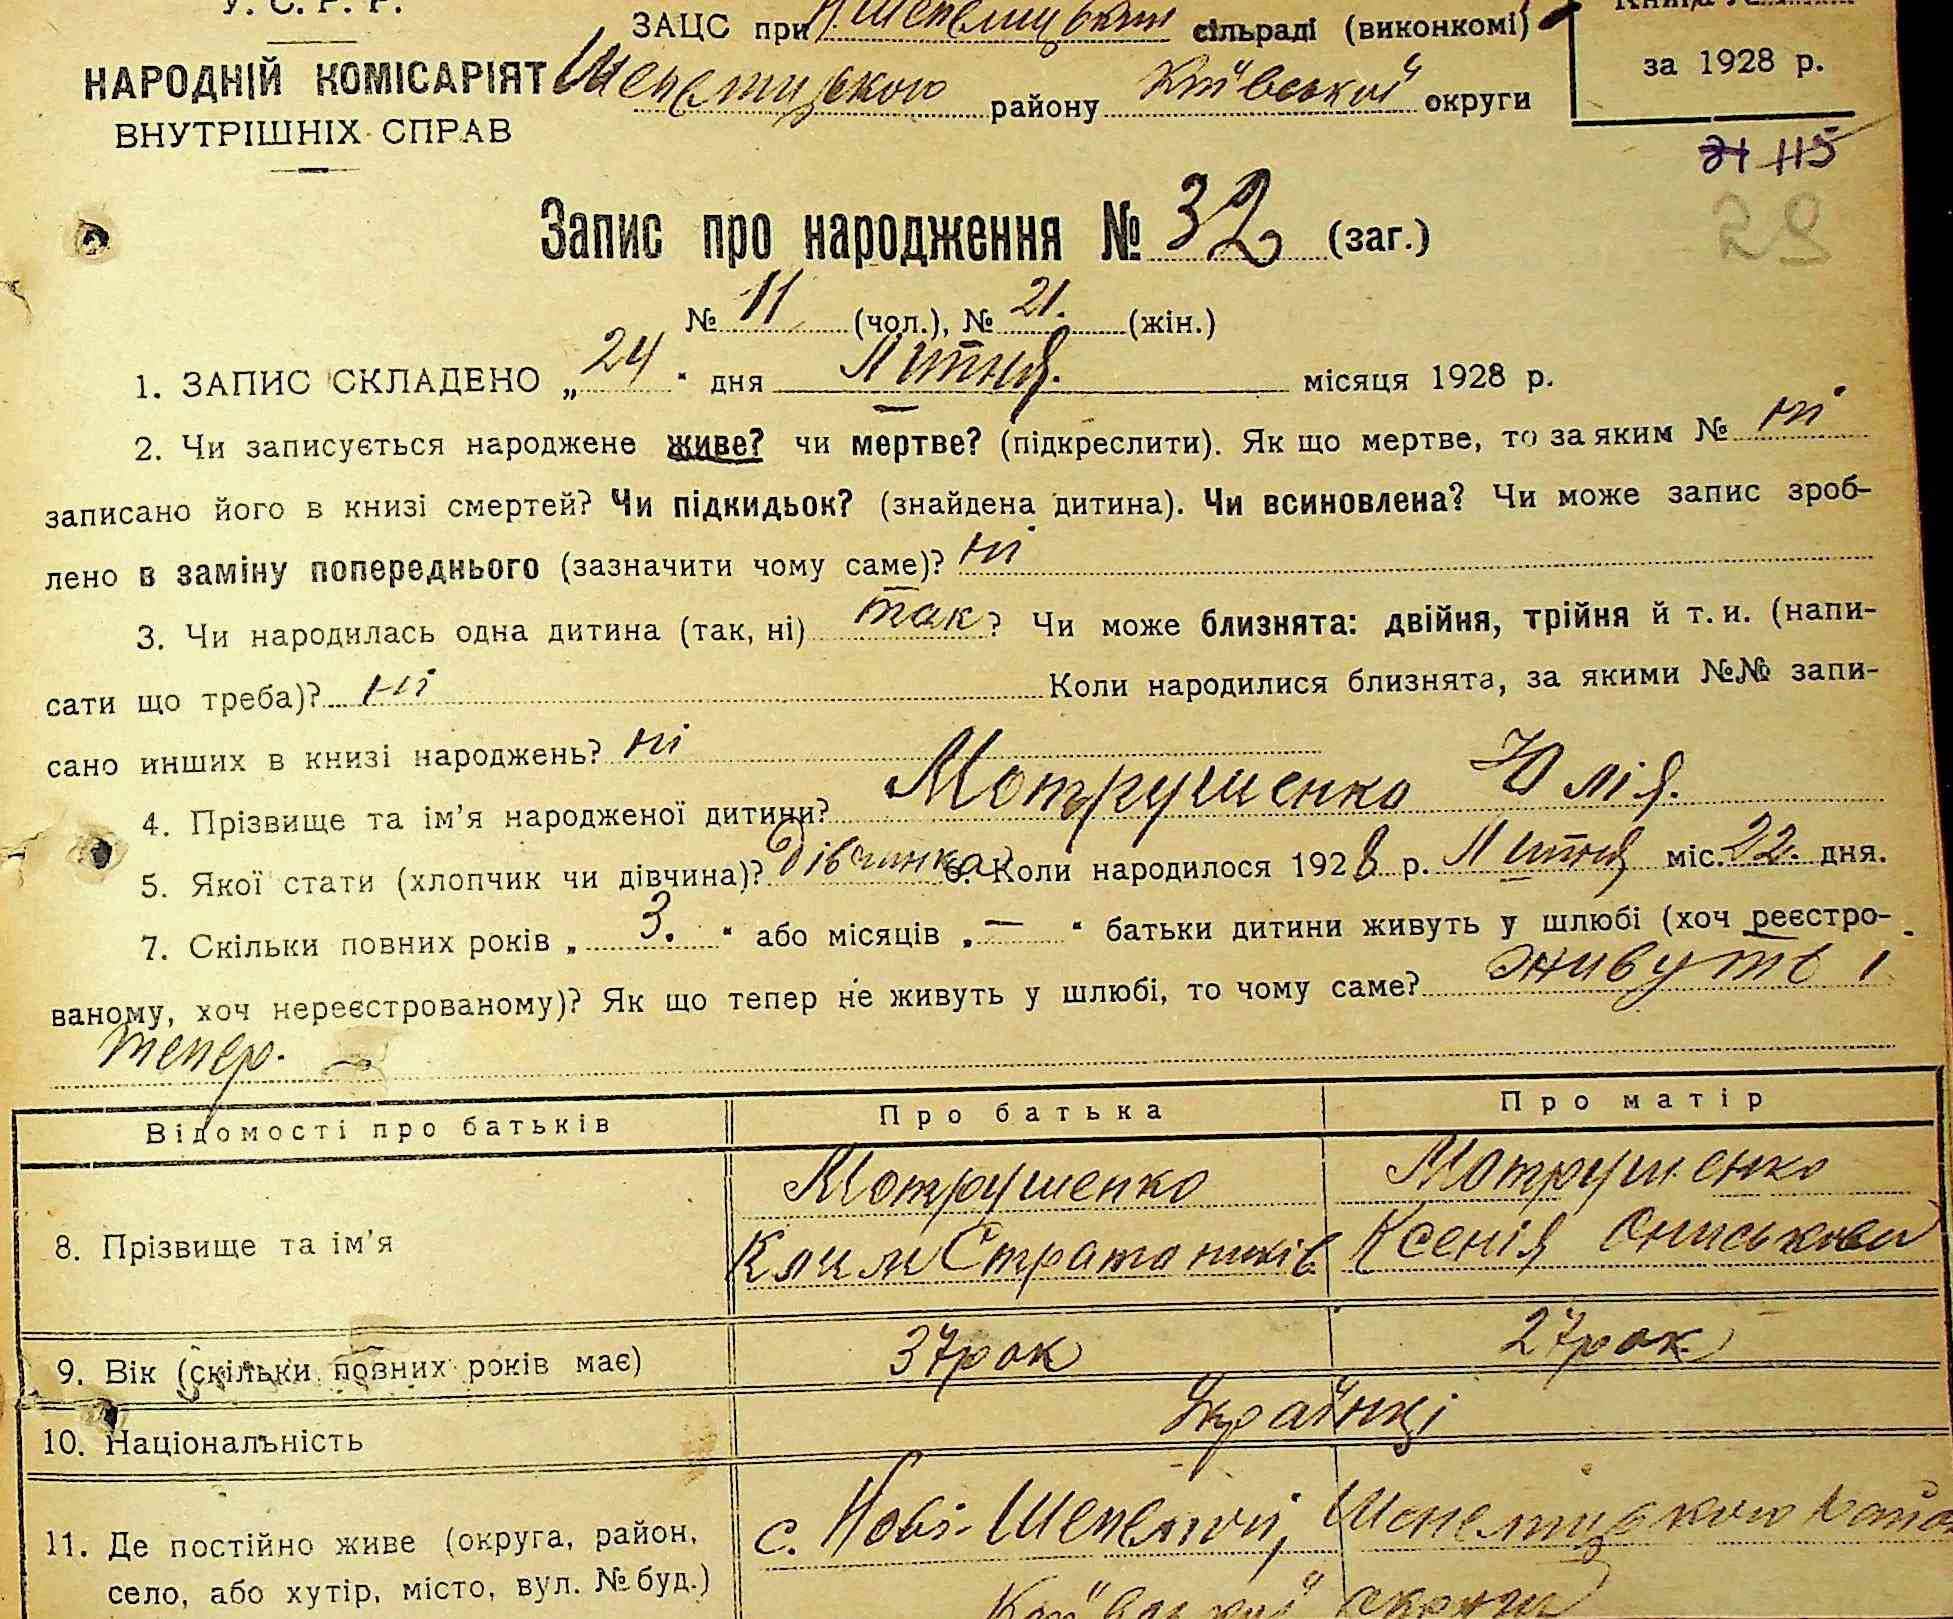 У. С. Р. Р.
ЗАЦС при Н. Шепелицькій сільраді (виконкомі)
НАРОДНІЙ КОМІСАРІЯТ
ВНУТРІШНІХ СПРАВ
району Київської округи
за 1928 р.
21 115
29
Запис про народження № 32 (заг.)
№ 11 (чол.), № 21. (жін.)
1. ЗАПИС СКЛАДЕНО „24“ дня Липня місяця 1928 р.
2. Чи записується народжене живе? чи мертве? (підкреслити). Як що мертве, то за яким № ні
записано його в книзі смертей? Чи підкидьок? (знайдена дитина). Чи всиновлена? Чи може запис зроб-
лено в заміну попереднього (зазначити чому саме)? ні
3. Чи народилась одна дитина (так, ні) так? Чи може близнята: двійня, трійня й т. и. (напи-
сати що треба)? ні Коли народилися близнята, за якими №№ запи-
сано инших в книзі народжень? ні
4. Прізвище та ім’я народженої дитини? Мотрушенко Юлія.
5. Якої стати (хлопчик чи дівчина)? дівчинка 6. Коли народилося 1928 р. Липня міс. 22. дня.
7. Скільки повних років „3.“ або місяців „—“ батьки дитини живуть у шлюбі (хоч реєстро-
ваному, хоч нереєстрованому)? Як що тепер не живуть у шлюбі, то чому саме? живуть і
тепер.
Відомості про батьків Про батька Про матір
Мотрушенко Мотрушенко
8. Прізвище та ім’я Клим Ксенія
9. Вік (скільки повних років має) 37 рок 27 рок
10. Національність Українці
11. Де постійно живе (округа, район, с. Нові-Шепеличі,
село, або хутір, місто, вул. № буд.) Київської округи